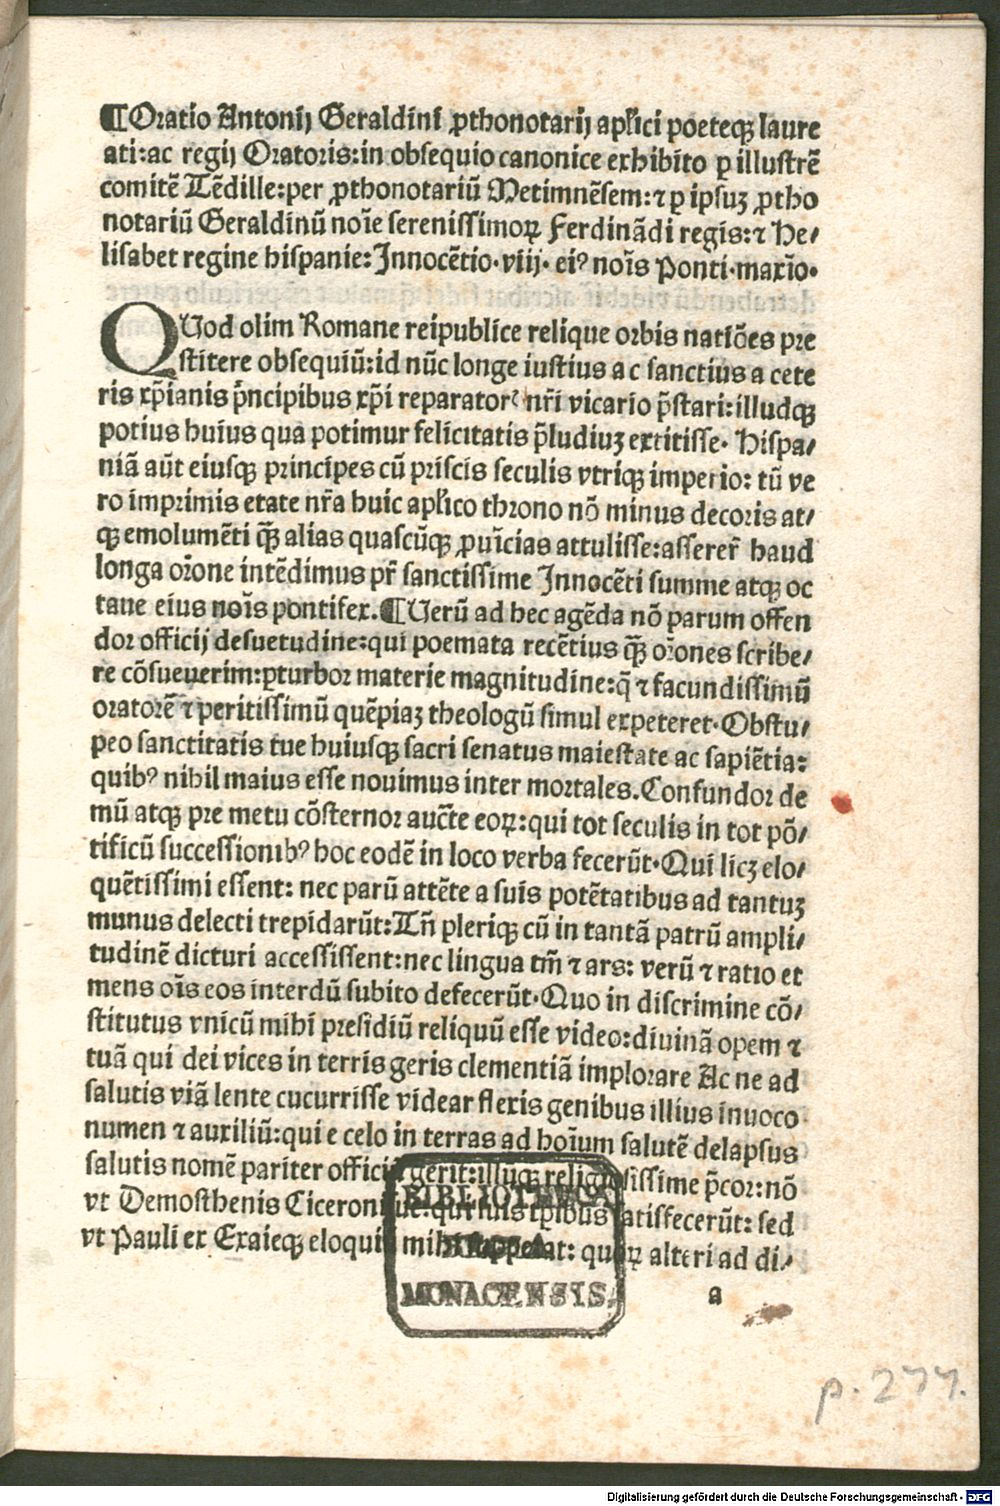 ¶Oratio Antonij Geraldini ꝓthonotarij apl̃ici poeteqꝫ laure
ati:ac regij Oratoris:in obsequio canonice exhibito ꝑ illustrẽ
comitẽ Tẽdille:per ꝓthonotariũ Metimnẽsem:⁊ ꝑ ipsuꝫ ꝓtho
notariũ Geraldinũ noĩe serenissimoꝝ Ferdinãdi regis:⁊ He/
lisabet regine hispanie:Innocẽtio.viij.eiꝰ noĩs Ponti.maxĩo.
QUod olim Romane reipublice relique orbis natiões pre
stitere obsequiũ:id nũc longe iustius ac sanctius a cete
ris xp̃ianis p̃ncipibus xp̃i reparatorꝭ nr̃i vicario p̃stari:illudqꝫ
potius huius qua potimur felicitatis p̃ludiuꝫ extitisse. Hispa/
niã aũt eiusqꝫ principes cũ priscis seculis vtriqꝫ imperio: tũ ve
ro imprimis etate nr̃a huic apl̃ico throno nõ minus decoris at/
qꝫ emolumẽti qꝫ̃ alias quascũqꝫ ꝓuĩcias attulisse:asserer̃ haud
longa or̃one intẽdimus pr̃ sanctissime Innocẽti summe atqꝫ oc
taue eius noĩs pontifex.¶Uerũ ad hec agẽda nõ parum offen
dor officij desuetudine:qui poemata recẽtius qꝫ̃ or̃ones scribe/
re cõsueuerim:ꝑturbor materie magnitudine:q̃ ⁊ facundissimũ
oratorẽ ⁊ peritissimũ quẽpiaꝫ theologũ simul expeteret.Obstu/
peo sanctitatis tue huiusqꝫ sacri senatus maiestate ac sapiẽtia:
quibꝰ nihil maius esse nouimus inter mortales.Confundor de
mũ atqꝫ pre metu cõsternor auc̃te eoꝝ:qui tot seculis in tot põ/
tificũ successionibꝰ hoc eodẽ in loco verba fecerũt.Qui licꝫ elo/
quẽtissimi essent: nec parũ attẽte a suis potẽtatibus ad tantuꝫ
munus delecti trepidarũt:Tñ pleriqꝫ cũ in tantã patrũ ampli/
tudinẽ dicturi accessissent:nec lingua tm̃ ⁊ ars: verũ ⁊ ratio et
mens oĩs eos interdũ subito defecerũt.Quo in discrimine cõ/
stitutus vnicũ mihi presidiũ reliquũ esse video:diuinã opem ⁊
tuã qui dei vices in terris geris clementiã implorare Ac ne ad
salutis viã lente cucurrisse videar flexis genibus illius inuoco
numen ⁊ auxiliũ:qui e celo in terras ad hoĩum salutẽ delapsus
salutis nomẽ pariter officiũ gerit:illuqꝫ religiosissime p̃cor:nõ
vt Demosthenis Ciceronisue:qui suis tp̃ibus satisfecerũt: sed
vt Pauli ex Exaieqꝫ eloquiũ mihi suppetat: quoꝝ alteri ad di/
a
BIBLIOTHECA
REGIA
MONACENSIS.
p. 277.
Digitalisierung gefördert durch die Deutsche Forschungsgemeinschaft - DFG